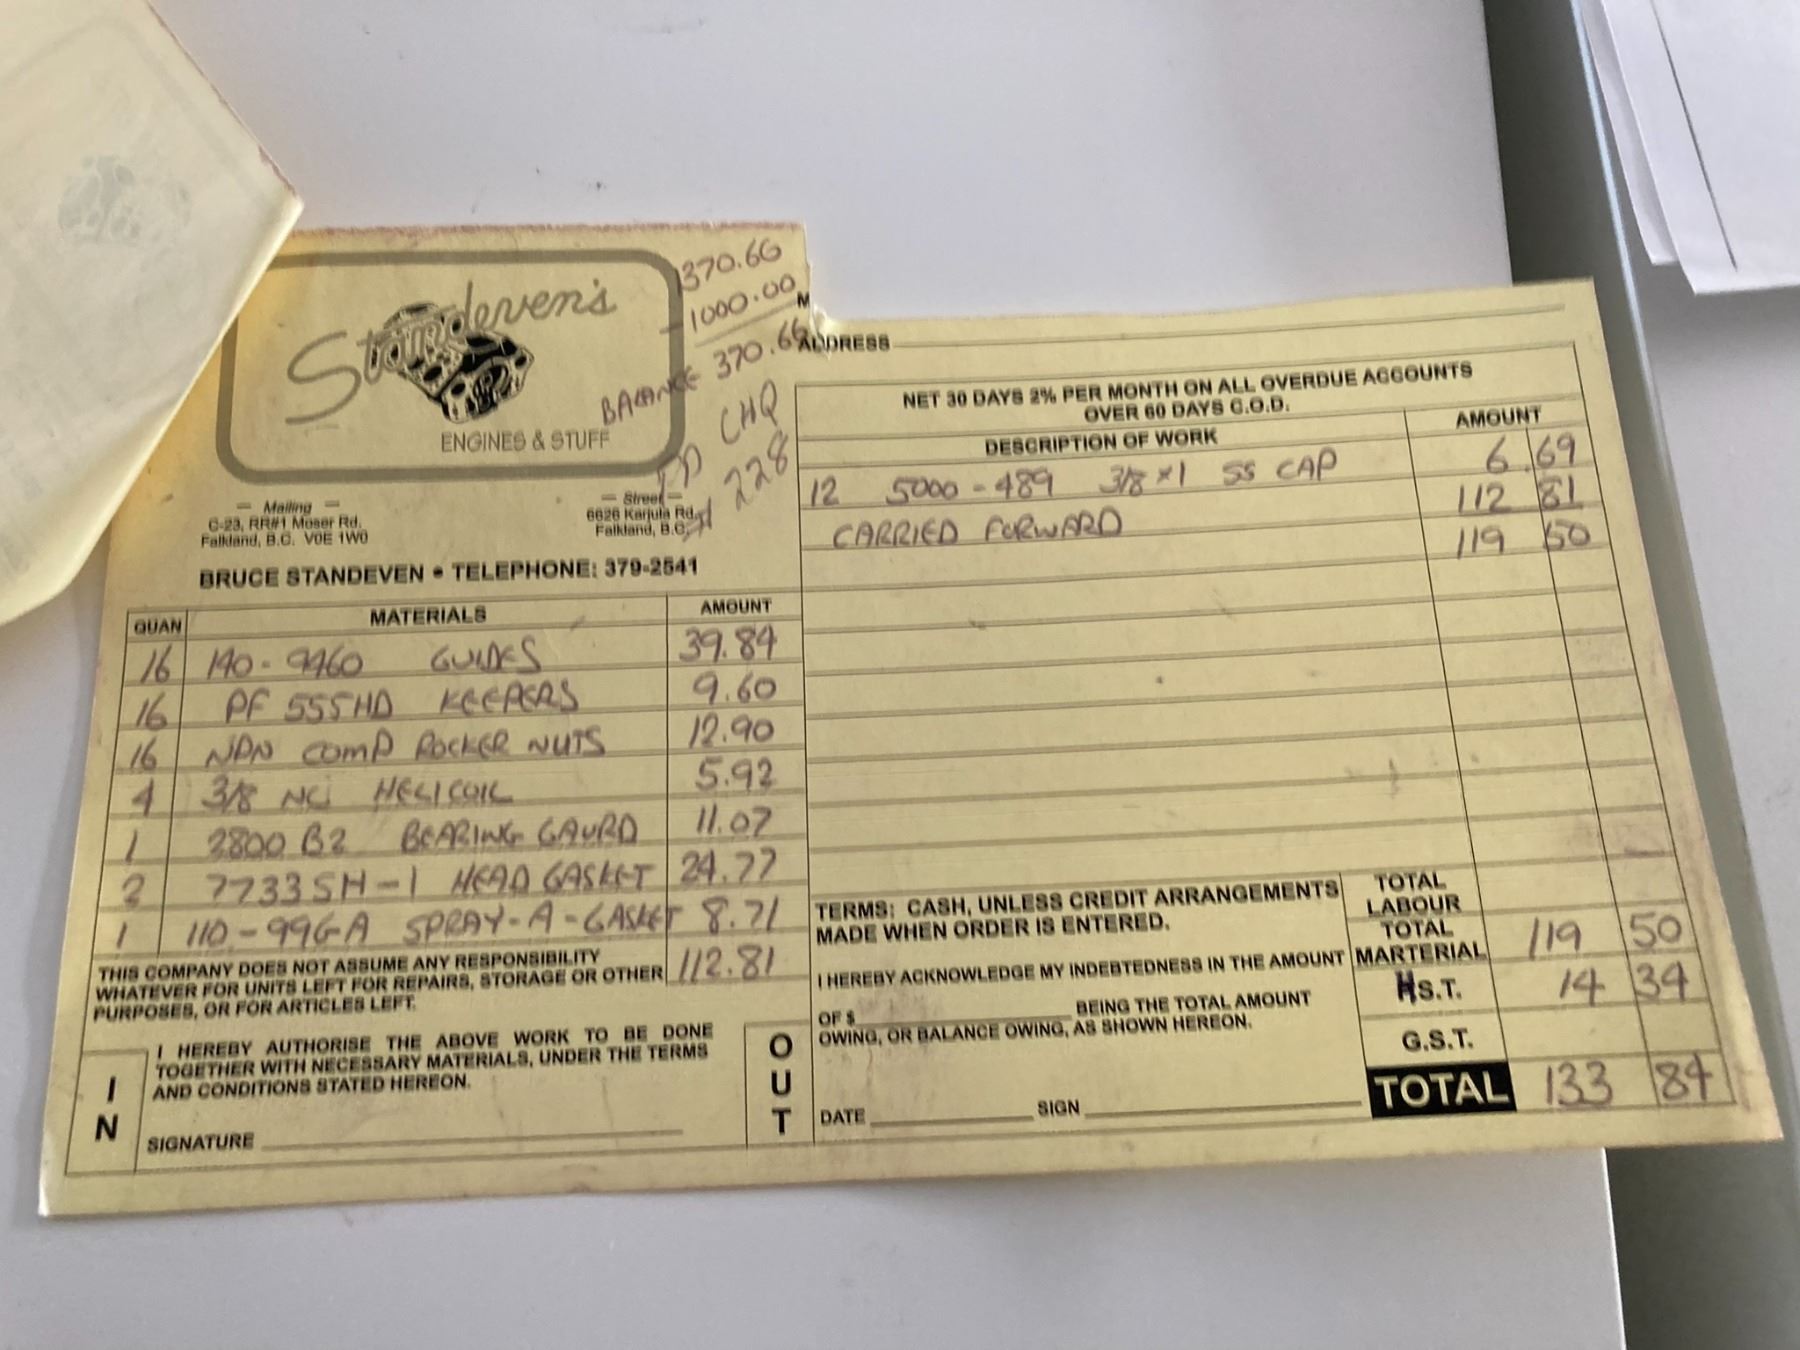 Standeven's
ENGINES & STUFF
1370.66
- 1000.00
BALANCE 370.66
PD CHQ
# 228
— Mailing —
C-23, RR#1 Moser Rd.
Falkland, B.C. V0E 1W0
— Street —
6626 Karjula Rd.
Falkland, B.C.
BRUCE STANDEVEN • TELEPHONE: 379-2541
QUAN MATERIALS AMOUNT
16 140-9460 GUIDES 39.84
16 PF 555HD KEEPERS 9.60
16 NPN COMP ROCKER NUTS 12.90
4 3/8 NC HELICOIL 5.92
1 2800 B2 BEARING GAURD 11.07
2 7733SH-1 HEAD GASKET 24.77
1 110-99G-A SPRAY-A-GASKET 8.71
112.81
THIS COMPANY DOES NOT ASSUME ANY RESPONSIBILITY
WHATEVER FOR UNITS LEFT FOR REPAIRS, STORAGE OR OTHER
PURPOSES, OR FOR ARTICLES LEFT.
IN
I HEREBY AUTHORISE THE ABOVE WORK TO BE DONE
TOGETHER WITH NECESSARY MATERIALS, UNDER THE TERMS
AND CONDITIONS STATED HEREON.
SIGNATURE
M
ADDRESS
NET 30 DAYS 2% PER MONTH ON ALL OVERDUE ACCOUNTS
OVER 60 DAYS C.O.D.
DESCRIPTION OF WORK AMOUNT
12 5000-489 3/8 x 1 SS CAP 6.69
CARRIED FORWARD 112 81
119 50
TERMS: CASH, UNLESS CREDIT ARRANGEMENTS
MADE WHEN ORDER IS ENTERED.
I HEREBY ACKNOWLEDGE MY INDEBTEDNESS IN THE AMOUNT
OF $ BEING THE TOTAL AMOUNT
OWING, OR BALANCE OWING, AS SHOWN HEREON.
OUT
DATE SIGN
TOTAL
LABOUR
TOTAL
MARTERIAL 119 50
H.S.T. 14 34
G.S.T.
TOTAL 133 84